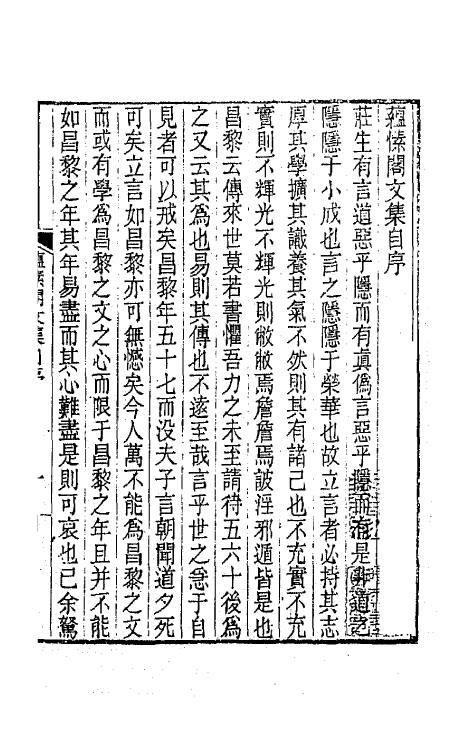 蘊愫閣文集自序
莊生有言道惡乎隱而有眞僞言惡乎隱而有是非道之
隱隱于小成也言之隱隱于榮華也故立言者必持其志
厚其學擴其識養其氣不然則其有諸己也不充實不充
實則不輝光不輝光則敝敝焉詹詹焉詖淫邪遁皆是也
昌黎云傳來世莫若書懼吾力之未至請待五六十後爲
之又云其爲也易則其傳也不遠至哉言乎世之急于自
見者可以戒矣昌黎年五十七而没夫子言朝聞道夕死
可矣立言如昌黎亦可無憾矣今人萬不能爲昌黎之文
而或有學爲昌黎之文之心而限于昌黎之年且并不能
如昌黎之年其年易盡而其心難盡是則可哀也已余駑
蘊愫閣文集自序
一